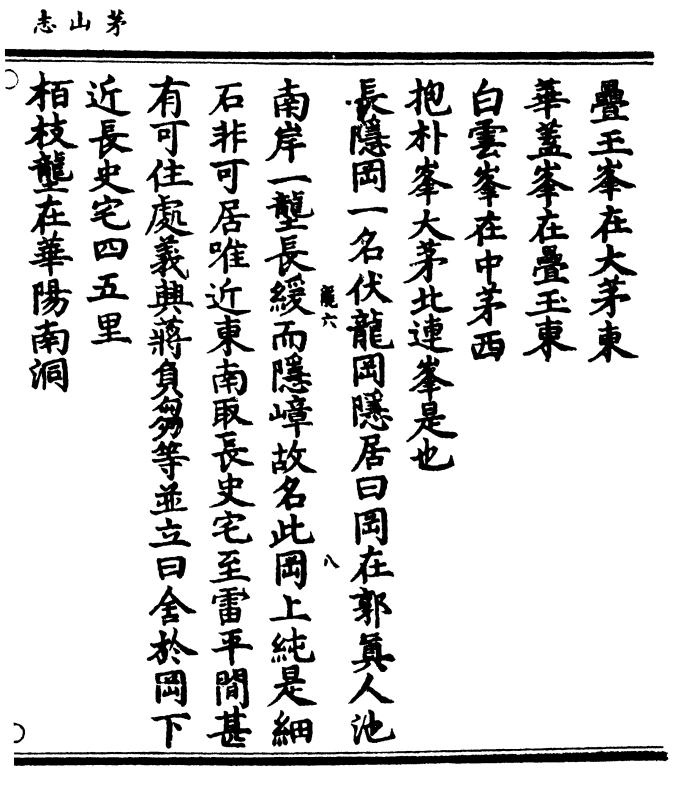 茅山志
疊玉峯在大茅東
華蓋峯在疊玉東
白雲峯在中茅西
抱朴峯大茅北連峯是也
長隱岡一名伏龍岡隱居曰岡在郭眞人池
龍六
八
南岸一壟長緩而隱嶂故名此岡上純是細
石非可居唯近東南取長史宅至雷平間甚
有可住處義興蔣負芻等並立曰舍於岡下
近長史宅四五里
栢枝壟在華陽南洞